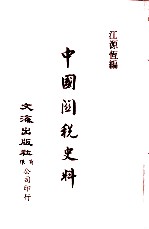 江恒源編
中國關稅史料
文海出版社有限公司印行